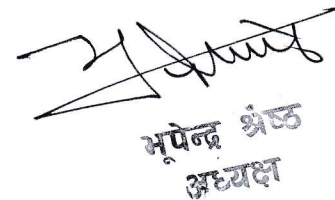 भूपेन्द्र श्रेष्ठ
अध्यक्ष